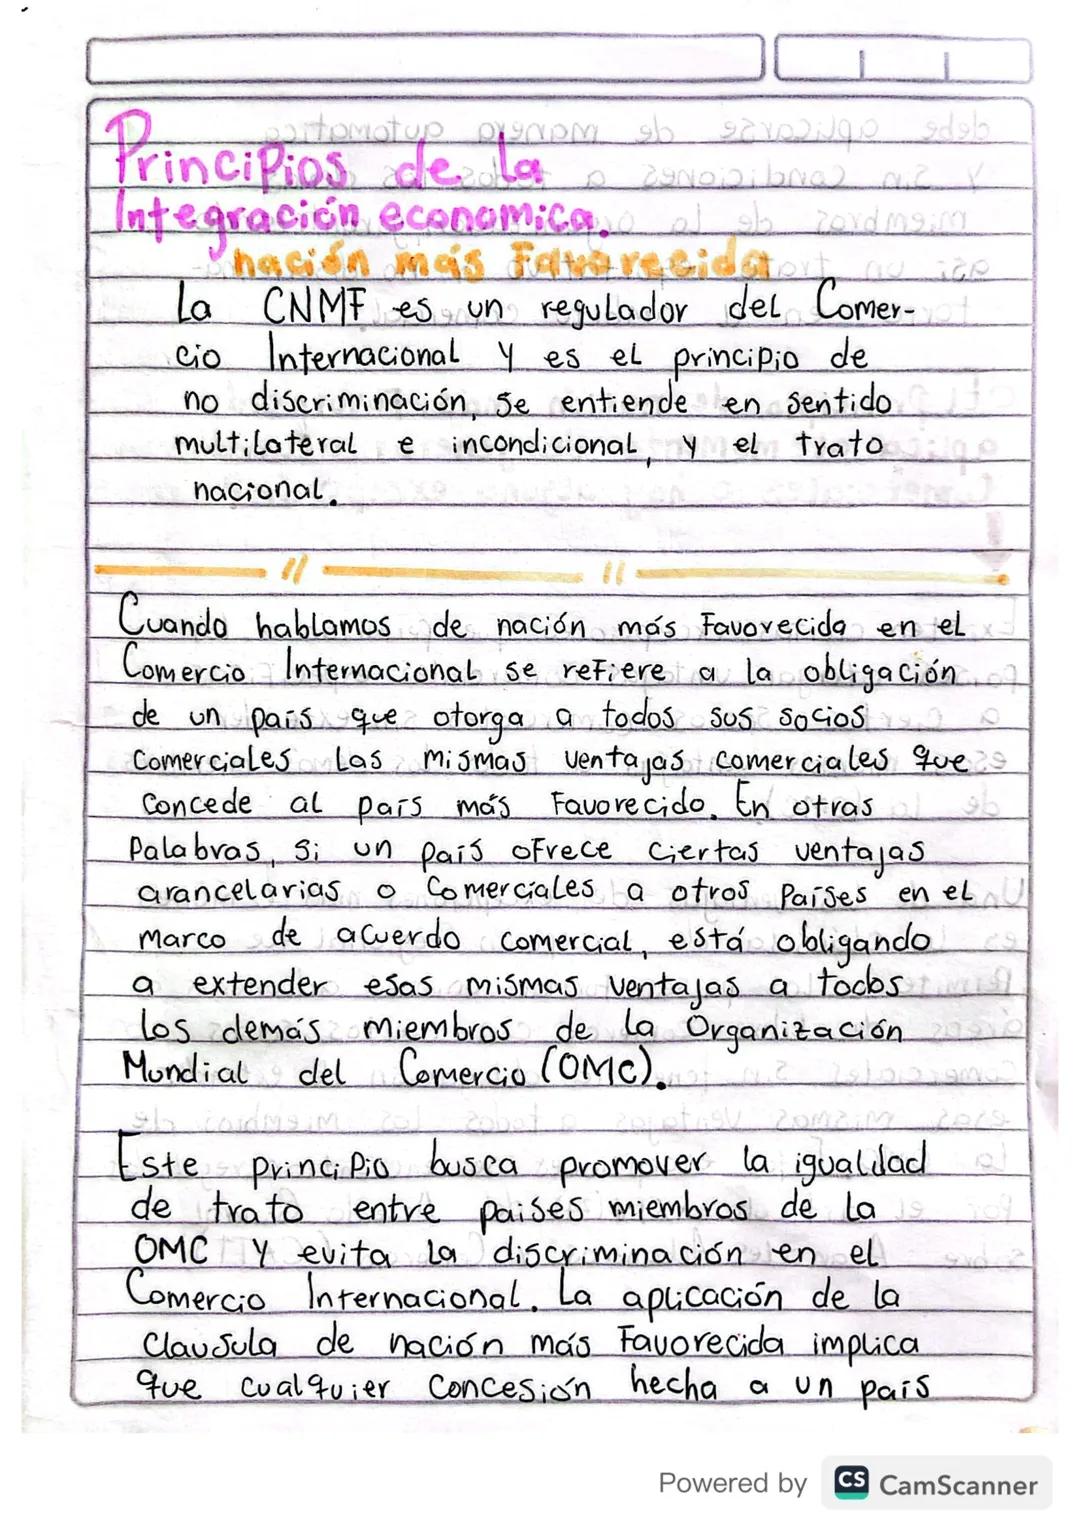 Principios de la
Integración economica.
nación más Favorecida
La CNMF es un regulador del Comer-
cio Internacional y es el principio de
no discriminación, se entiende en sentido
multilateral e incondicional, y el trato
nacional.
Cuando hablamos de nación más Favorecida en el
Comercio Internacional se refiere a la obligación
de un país que otorga a todos sus socios
comerciales las mismas ventajas comerciales que
concede al país más Favorecido. En otras
Palabras, si un país ofrece ciertas ventajas
arancelarias o Comerciales a otros Países en el
marco de acuerdo comercial, está obligando
a extender esas mismas ventajas a todos
los demás miembros de la Organización
Mundial del Comercio (OMC).
Este principio busca promover la igualdad
de trato entre países miembros de la
OMC y evita la discriminación en el
Comercio Internacional. La aplicación de la
Clausula de nación más Favorecida implica
que cualquier concesión hecha a un país
Powered by CS CamScanner